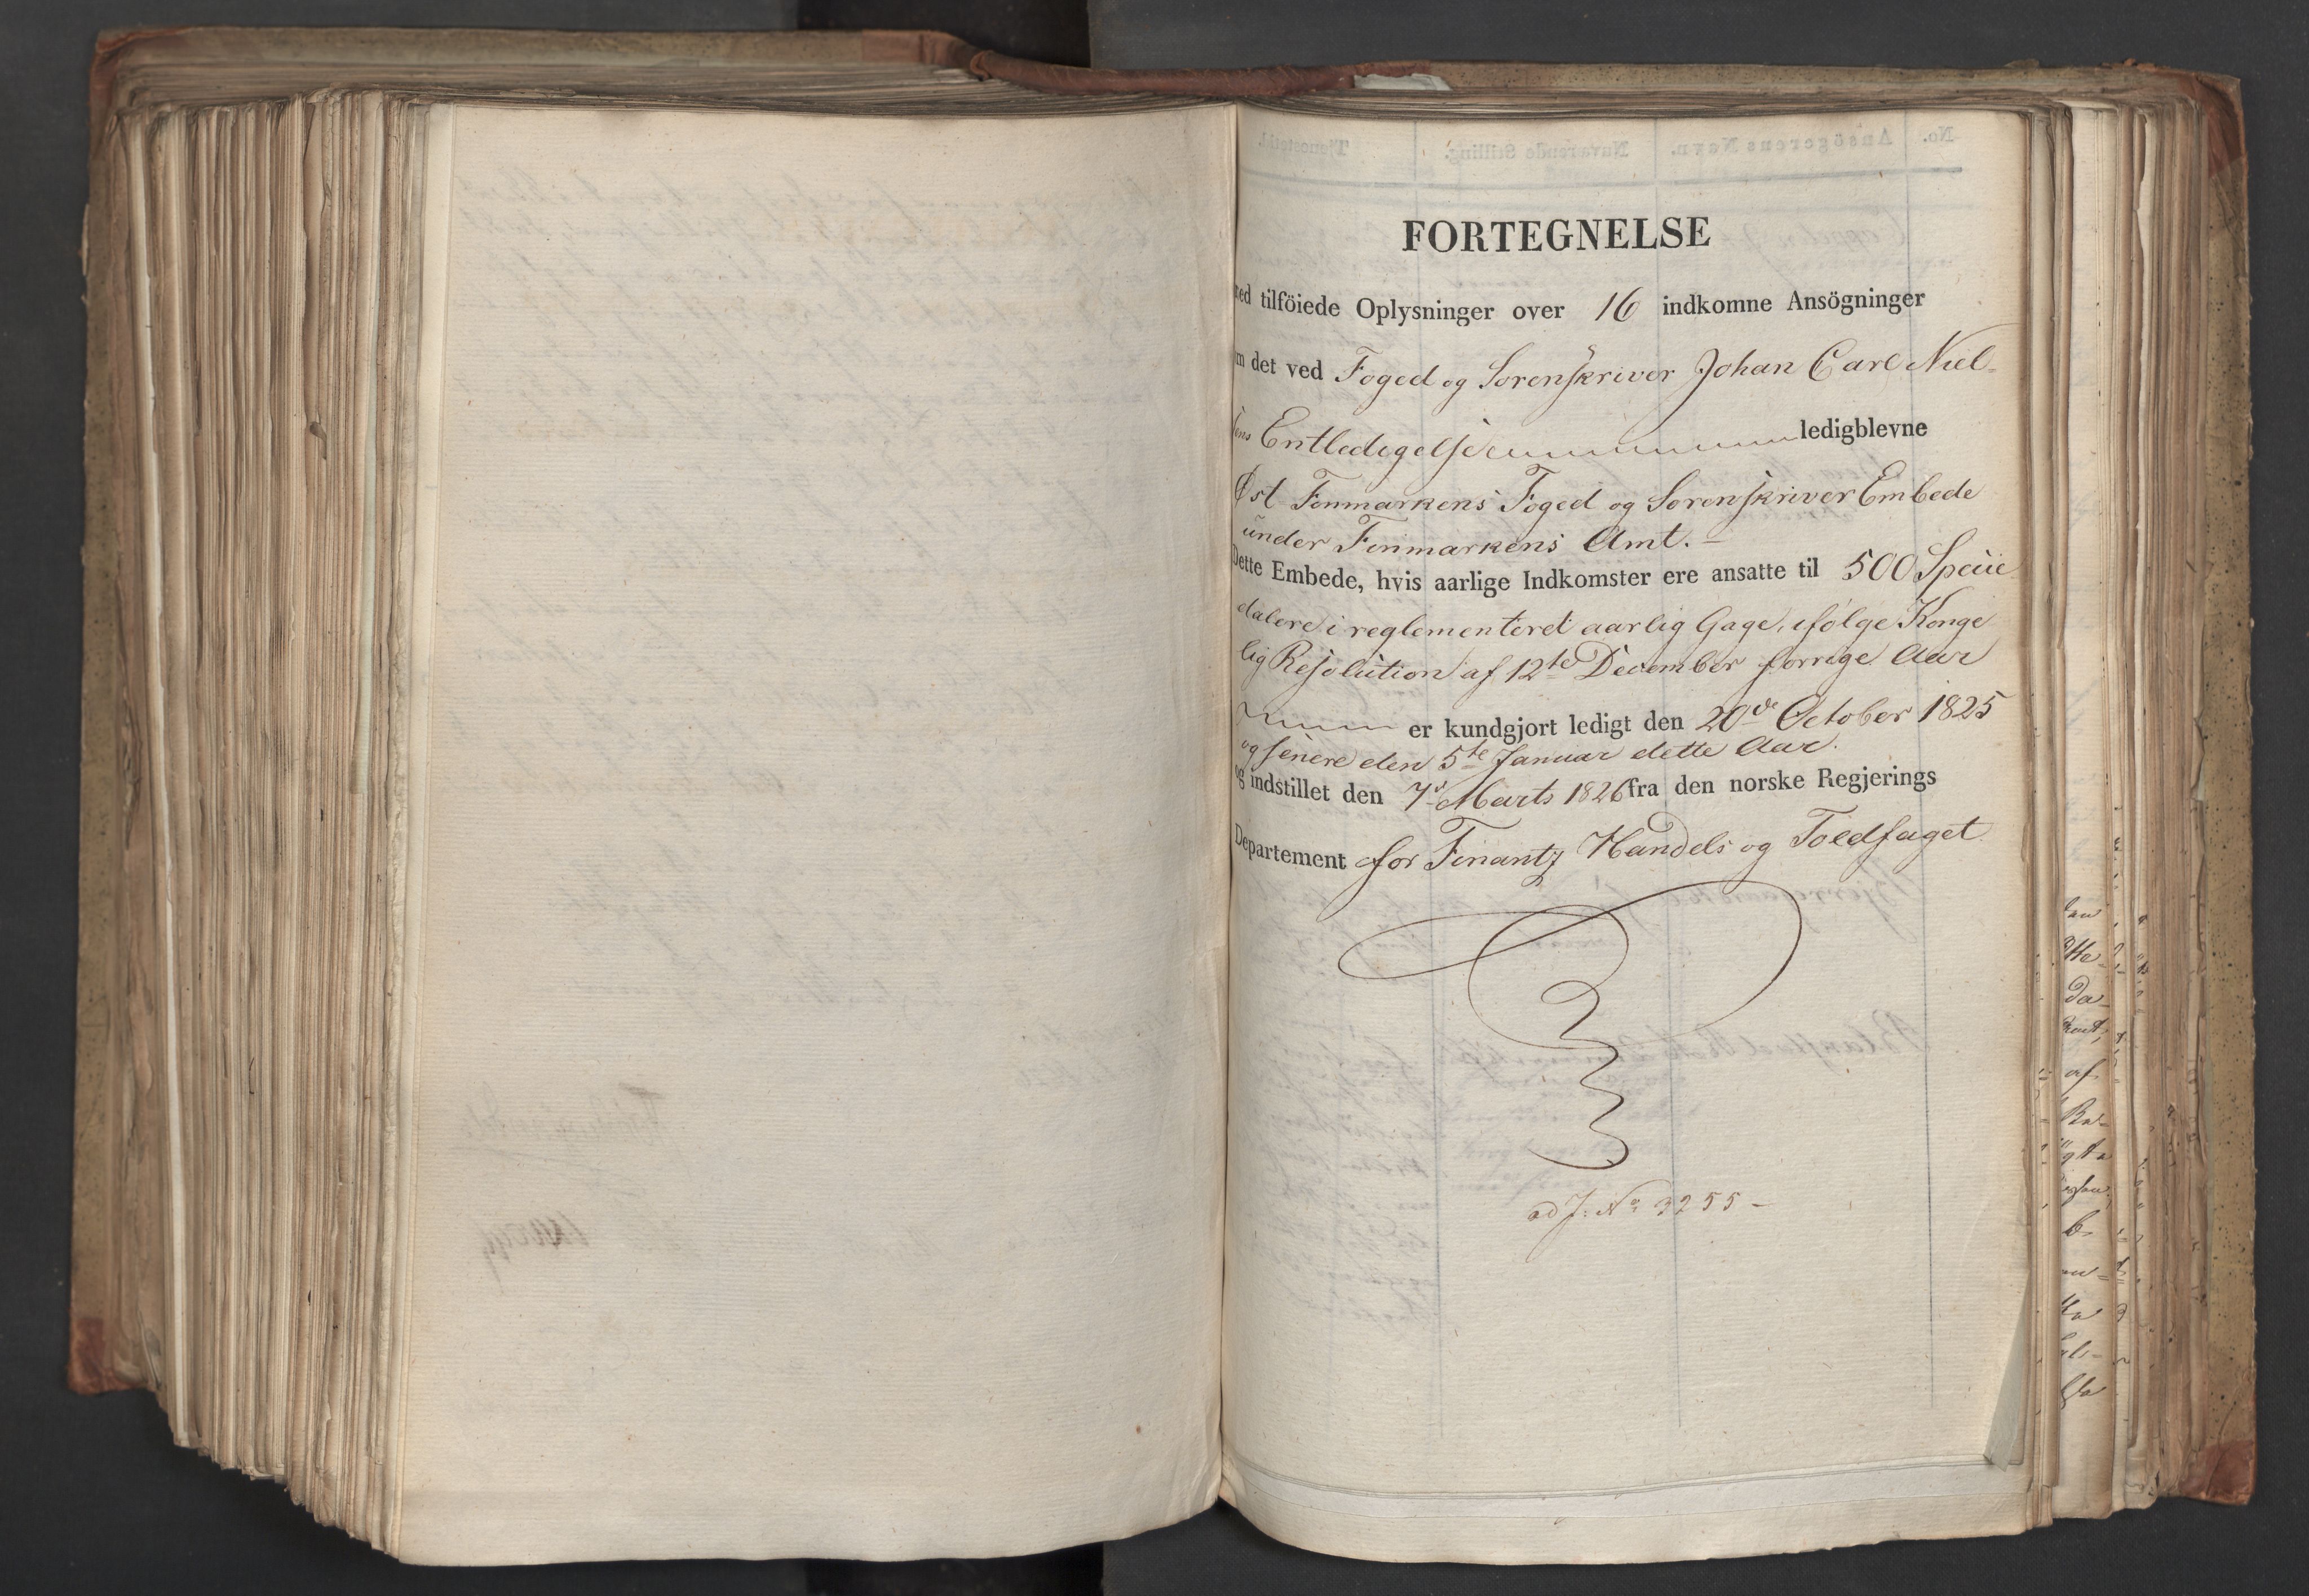 FORTEGNELSE
med tilföiede Oplysninger over 16 indkomne Ansögninger
om det ved Foged og Sorenskriver Johan Carl Niel-
sens Entledigelse ledigblevne
Øst Finmarkens Foged og Sorenskriver Embede
under Finmarkens Amt. -
Dette Embede, hvis aarlige Indkomster ere ansatte til 500 Specie
dalere i reglementeret aarlig Gage, ifølge Konge
lig Resolution af 12te December forrige Aar
er kundgjort ledigt den 20de October 1825
og senere den 5te Januar dette Aar.
og indstillet den 7de Marts 1826 fra den norske Regjerings
Departement for Finants Handels og Toldfaget
ad J: No 3255 -